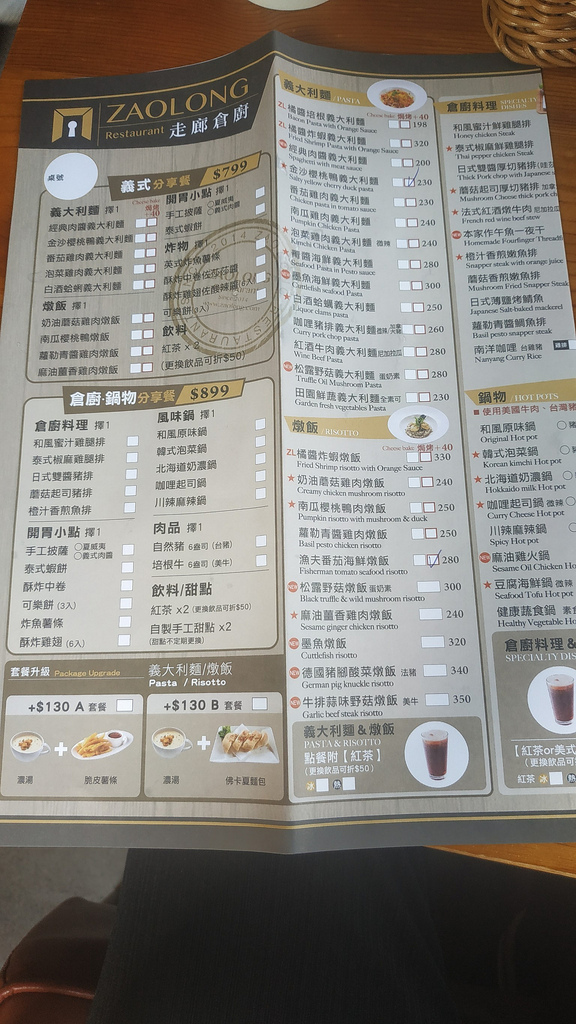 ZAOLONG
Restaurant 走廊倉廚
桌號
義式分享餐 $799
義大利麵 擇1
Cheese bake 焗烤 +40
經典肉醬義大利麵
金沙櫻桃鴨義大利麵
番茄雞肉義大利麵
泡菜雞肉義大利麵
白酒蛤蜊義大利麵
燉飯 擇1
奶油蘑菇雞肉燉飯
南瓜櫻桃鴨燉飯
蘿勒青醬雞肉燉飯
麻油薑香雞肉燉飯
開胃小點 擇1
手工披薩 ○夏威夷 ○義式肉醬
泰式蝦餅
炸物 擇1
英式炸魚薯條
酥炸中卷佐莎莎醬
飲料
紅茶 x 2
(更換飲品可折$50)
倉廚·鍋物分享餐 $899
倉廚料理 擇1
和風蜜汁雞腿排
泰式椒麻雞腿排
日式雙醬豬排
蘑菇起司豬排
橙汁香煎魚排
開胃小點 擇1
手工披薩 ○夏威夷 ○義式肉醬
泰式蝦餅
酥炸中卷
可樂餅 (3入)
炸魚薯條
酥炸雞翅 (6入)
風味鍋 擇1
和風原味鍋
韓式泡菜鍋
北海道奶濃鍋
咖哩起司鍋
川辣麻辣鍋
肉品 擇1
自然豬 6盎司 (台豬)
培根牛 6盎司 (美牛)
飲料/甜點
紅茶 x2 (更換飲品可折$50)
自製手工甜點 x2
(甜點不定期更換)
套餐升級 Package Upgrade
義大利麵/燉飯
Pasta / Risotto
+$130 A 套餐
濃湯
+
脆皮薯條
+$130 B 套餐
濃湯
+
佛卡夏麵包
義大利麵 / PASTA
Cheese bake 焗烤+40
ZL 橘醬培根義大利麵 198
Bacon Pasta with Orange Sauce
ZL 橘醬炸蝦義大利麵 320
Fried Shrimp Pasta with Orange Sauce
NEW 經典肉醬義大利麵 200
Spaghetti with meat sauce
★ 金沙櫻桃鴨義大利麵 230
Salty yellow cherry duck pasta
番茄雞肉義大利麵 230
Chicken pasta in tomato sauce
南瓜雞肉義大利麵 240
Pumpkin Chicken Pasta
★ 泡菜雞肉義大利麵 微辣 240
Kimchi Chicken Pasta
★ 青醬海鮮義大利麵 280
Seafood Pasta in Pesto sauce
NEW 墨魚海鮮義大利麵 300
Cuttlefish seafood Pasta
★ 白酒蛤蠣義大利麵 250
Liquor clams pasta
咖哩豬排義大利麵 260
Curry pork chop pasta
紅酒牛肉義大利麵 尼加拉瓜 280
Wine Beef Pasta
NEW 松露野菇義大利麵 蛋奶素 280
Truffle Oil Mushroom Pasta
NEW 田園鮮蔬義大利麵 全素可 230
Garden fresh vegetables Pasta
燉飯 / RISOTTO
Cheese bake 焗烤+40
ZL 橘醬炸蝦燉飯 330
Fried Shrimp risotto with Orange Sauce
★ 奶油蘑菇雞肉燉飯 240
Creamy chicken mushroom risotto
★ 南瓜櫻桃鴨肉燉飯 250
Pumpkin risotto with mushroom & duck
蘿勒青醬雞肉燉飯 250
Basil pesto chicken risotto
漁夫番茄海鮮燉飯 280
Fisherman tomato seafood risotto
NEW 松露野菇燉飯 蛋奶素 300
Black truffle & wild mushroom risotto
★ 麻油薑香雞肉燉飯 240
Sesame ginger chicken risotto
NEW 墨魚燉飯 320
Cuttlefish risotto
NEW 德國豬腳酸菜燉飯 法豬 340
German pig knuckle risotto
NEW 牛排蒜味野菇燉飯 美牛 350
Garlic beef steak risotto
義大利麵 & 燉飯
PASTA & RISOTTO
點餐附【紅茶】
(更換飲品可折$50)
冰 熱
倉廚料理 SPECIALTY DISHES
和風蜜汁鮮雞腿排
Honey chicken Steak
★ 泰式椒麻鮮雞腿排
Thai pepper chicken Steak
日式雙醬厚切豬排
Thick Pork chop with Japanese
★ 蘑菇起司厚切豬排
Mushroom Cheese thick pork ch
★ 法式紅酒燉牛肉 尼加拉瓜
French red wine beef stew
NEW 本家炸午魚一夜干
Homemade Fourfinger Threadfi
★ 橙汁香煎嫩魚排
Snapper steak with orange juice
蘑菇香煎嫩魚排
Mushroom Fried Snapper Steak
日式薄鹽烤鯖魚
Japanese Salt-baked mackerel
蘿勒青醬鯛魚排
Basil pesto snapper steak
南洋咖哩 台雞豬
Nanyang Curry Rice
鍋物 / HOT POTS
■ 使用美國牛肉、台灣豬
和風原味鍋
Original Hot pot
★ 韓式泡菜鍋
Korean kimchi Hot pot
★ 北海道奶濃鍋
Hokkaido milk Hot pot
★ 咖哩起司鍋 微辣
Curry Cheese Hot pot
川辣麻辣鍋
Spicy Hot pot
NEW 麻油雞火鍋
Sesame Oil Chicken Ho
★ 豆腐海鮮鍋 微辣
Seafood Tofu Hot pot
健康蔬食鍋
Healthy Vegetable Ho
倉廚料理 &
SPECIALTY DIS
【紅茶or美式
(更換飲品可折
紅茶 冰 熱